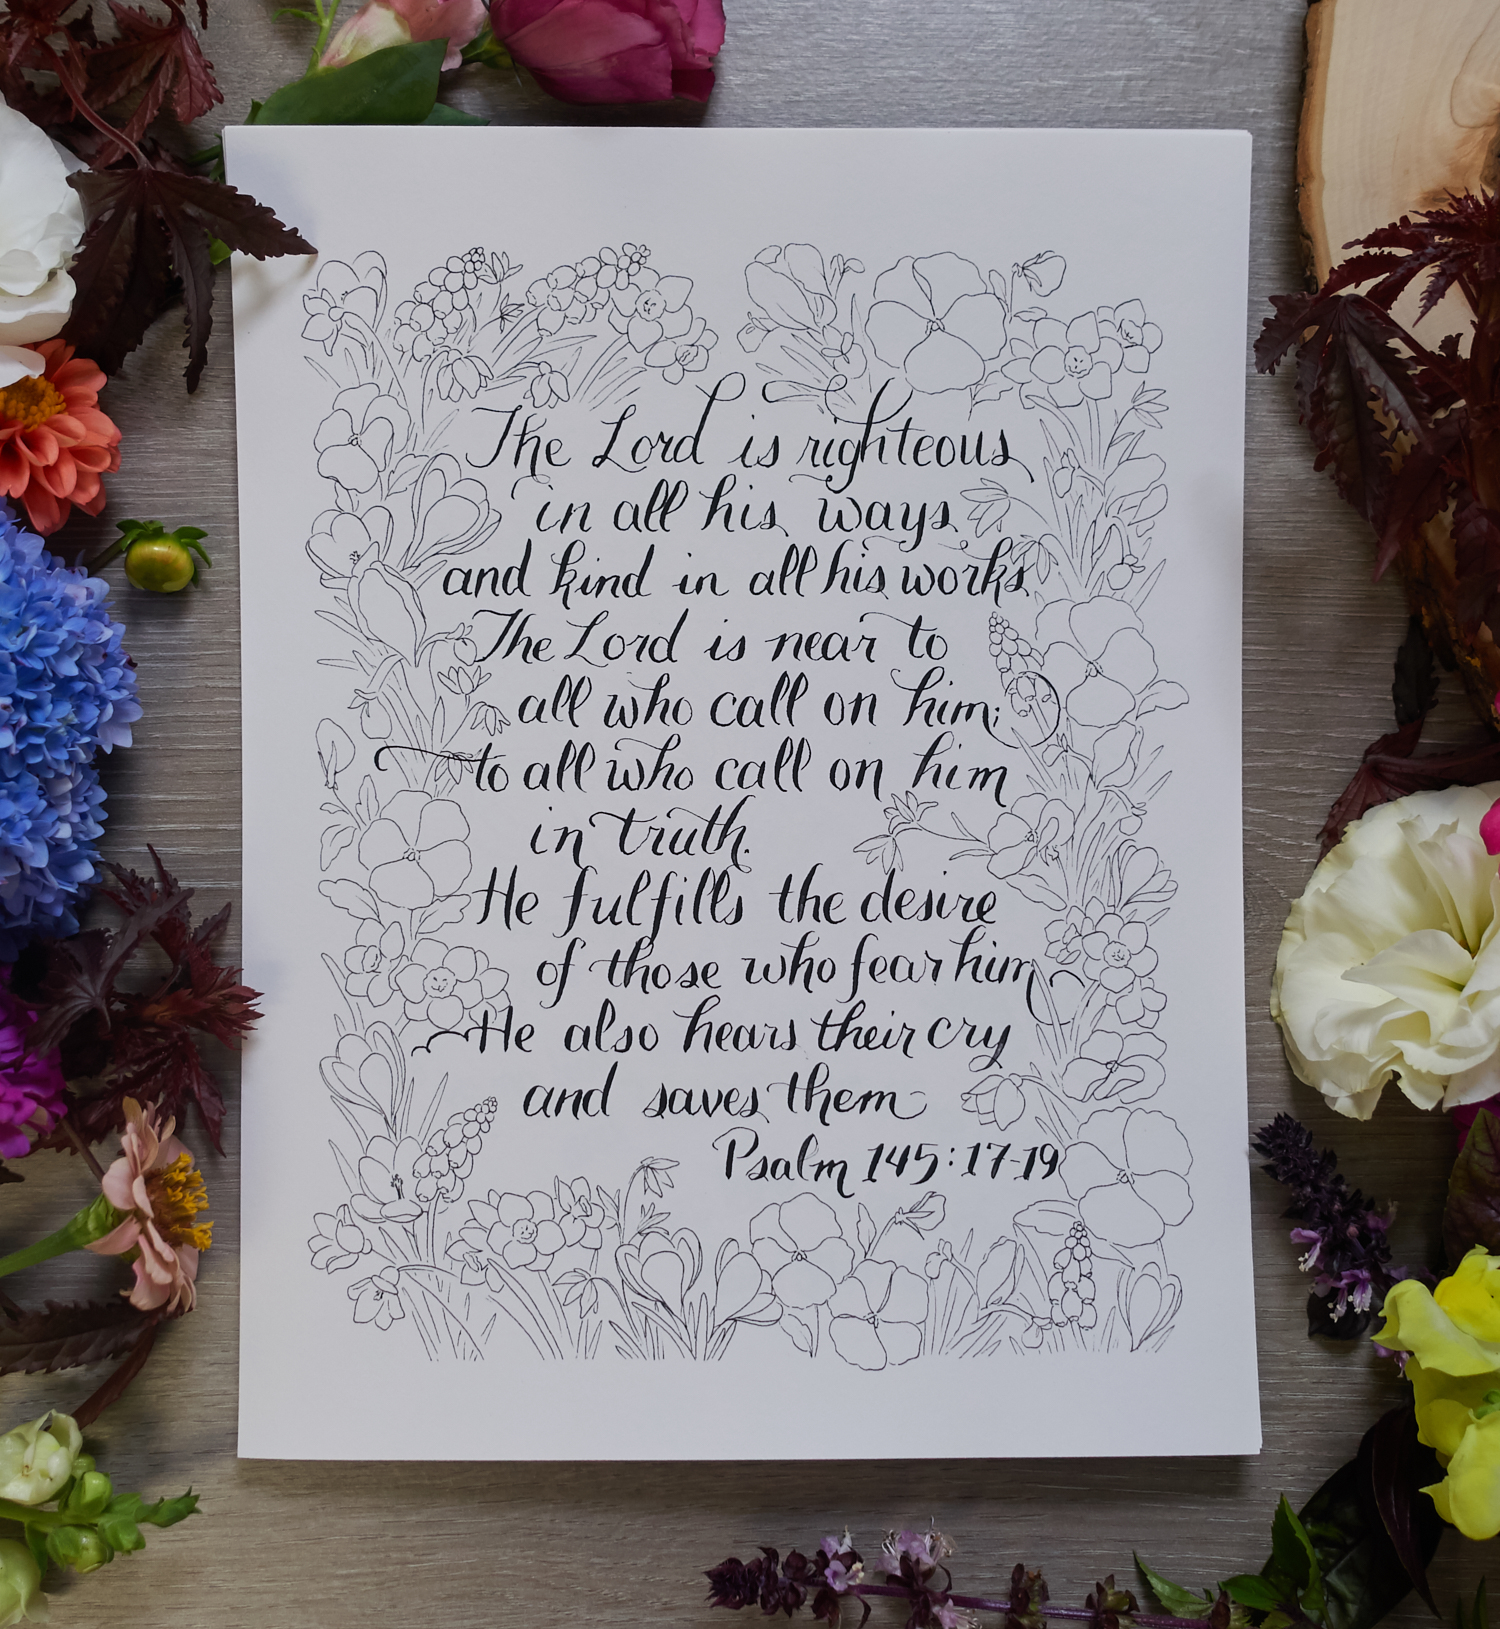 The Lord is righteous
in all his ways
and kind in all his works
The Lord is near to
all who call on him;
to all who call on him
in truth.
He fulfills the desire
of those who fear him
He also hears their cry
and saves them
Psalm 145:17-19